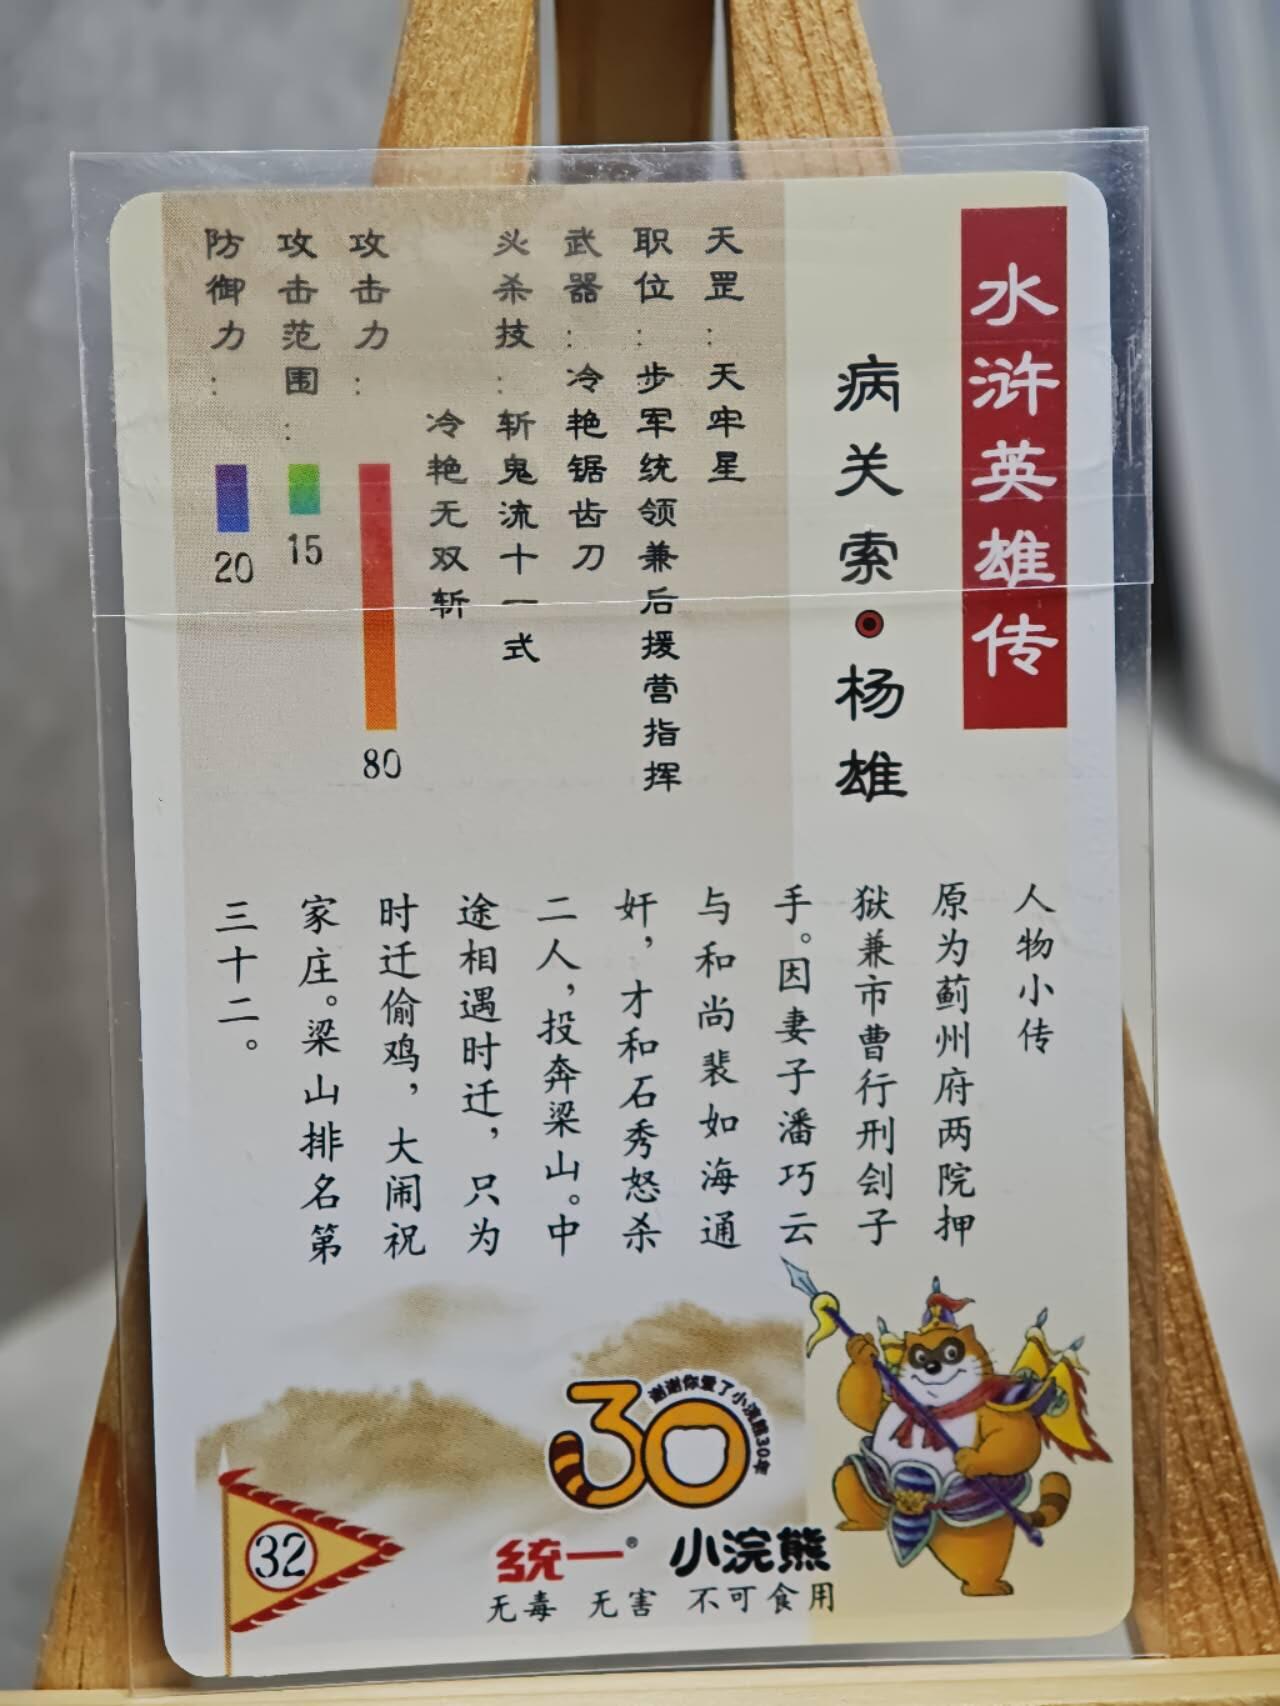 水浒英雄传
病关索·杨雄
天罡：天牢星
职位：步军统领兼后援营指挥
武器：冷艳锯齿刀
必杀技：斩鬼流十一式
冷艳无双斩
攻击力：
80
攻击范围：
15
防御力：
20
人物小传
原为蓟州府两院押
狱兼市曹行刑刽子
手。因妻子潘巧云
与和尚裴如海通
奸，才和石秀怒杀
二人，投奔梁山。中
途相遇时迁，只为
时迁偷鸡，大闹祝
家庄。梁山排名第
三十二。
32
30
谢谢你爱了小浣熊30年
统一® 小浣熊
无毒 无害 不可食用